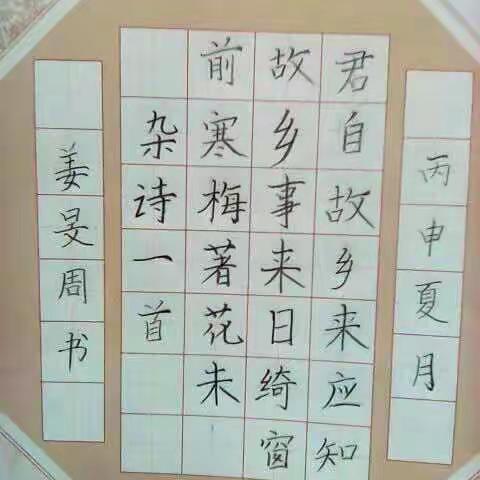 丙申夏月
君自故乡来应知
故乡事来日绮窗
前寒梅著花未
杂诗一首
姜旻周书